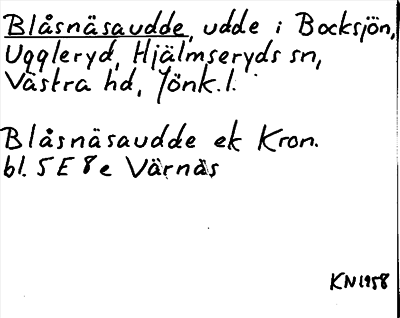 Blåsnäsaudde, udde i Bocksjön,
Uggleryd, Hjälmseryds sn,
Västra hd, Jönk. l.
Blåsnäsaudde ek Kron.
bl. 5 E 8 e Värnäs
KN1958